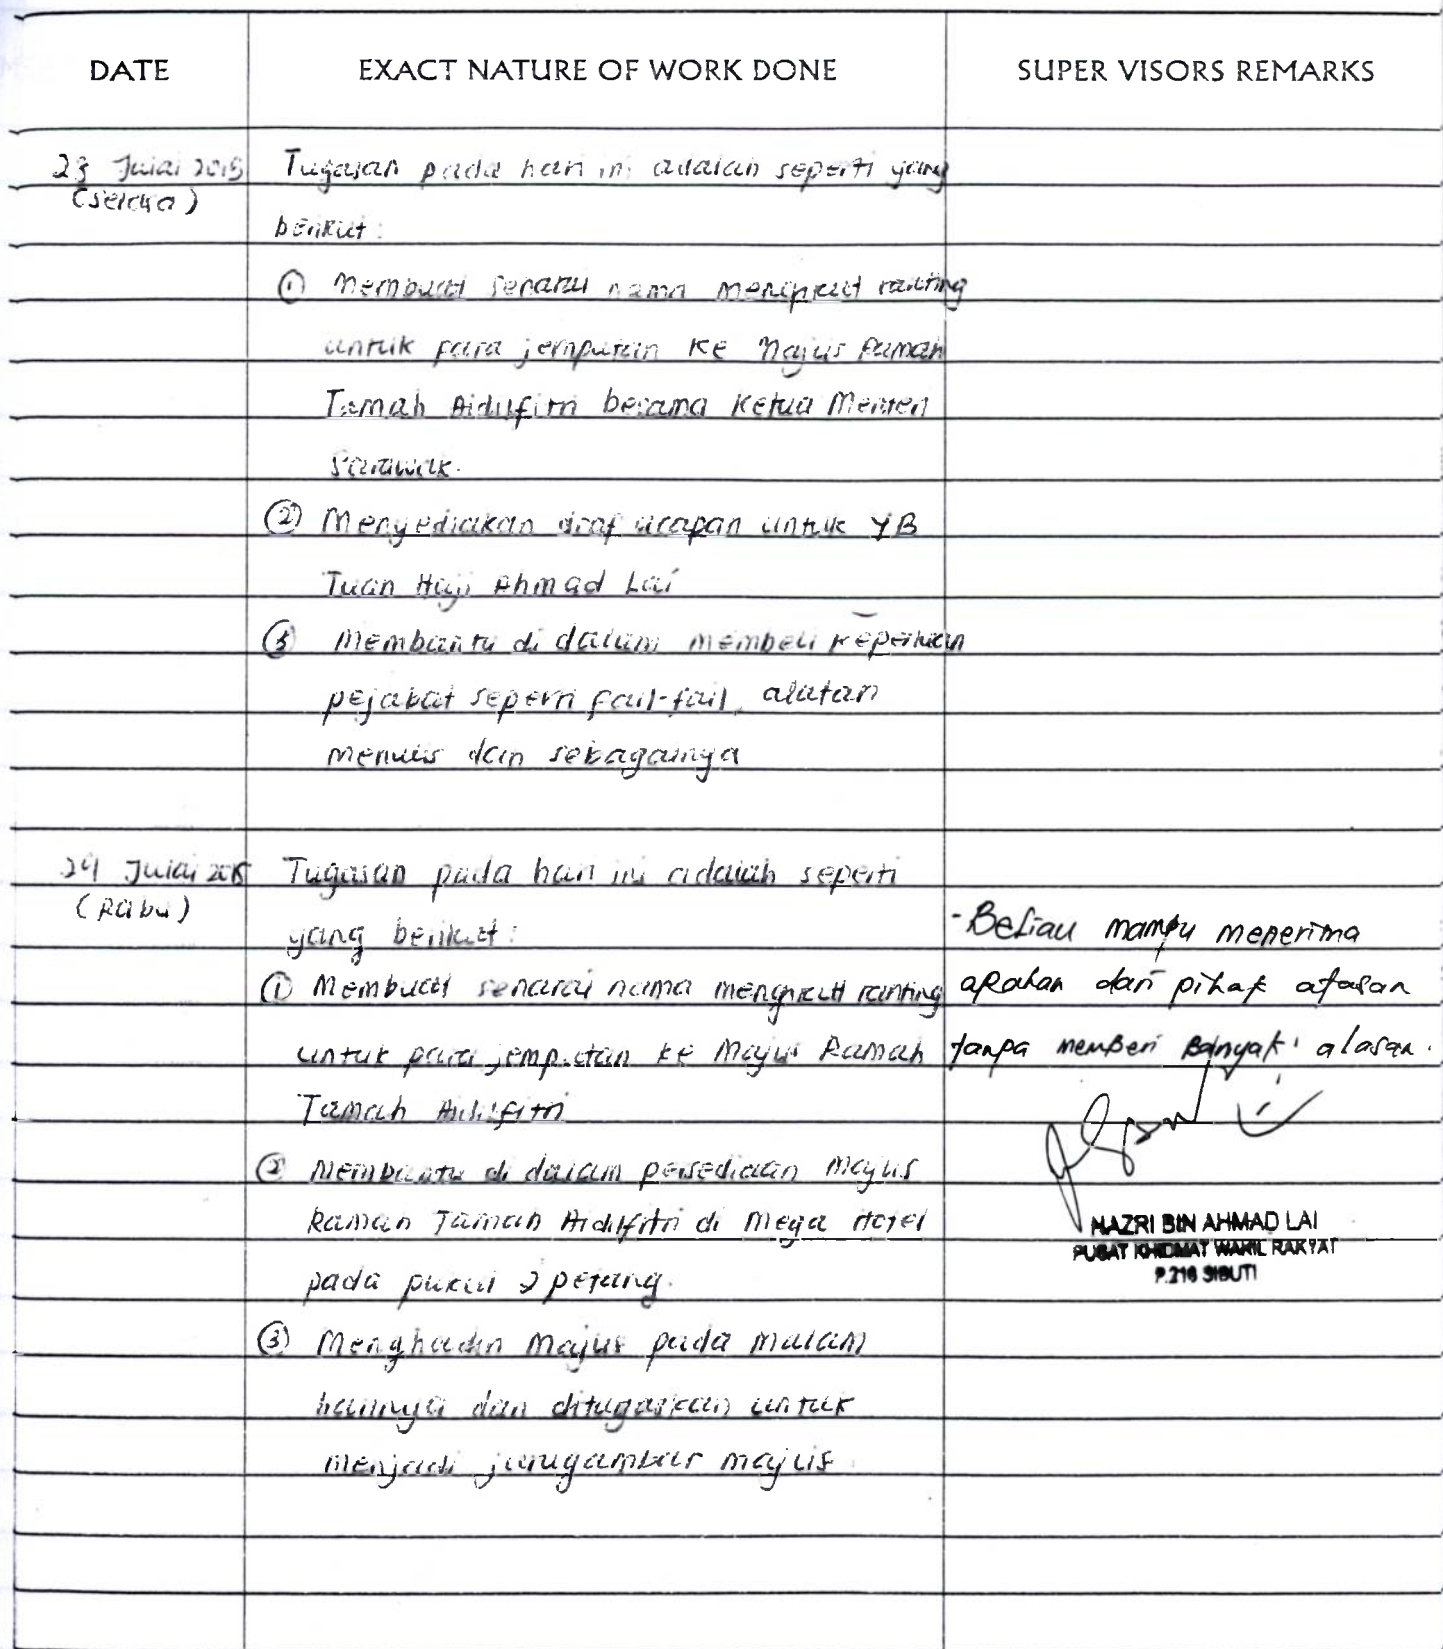 DATE EXACT NATURE OF WORK DONE SUPER VISORS REMARKS
28 Julai 2015 Tugasan pada hari ini adalah seperti yang
(Selasa)
berikut:
① Membuat senarai nama mengikut ranting
untuk para jemputan ke Majlis Ramah
Tamah Aidilfitri bersama Ketua Menteri
Sarawak.
② Menyediakan draf ucapan untuk YB
Tuan Haji Ahmad Lai
③ Membantu di dalam membeli keperluan
pejabat seperti fail-fail, alatan
menulis dan sebagainya
29 Julai 2015 Tugasan pada hari ini adalah seperti
(Rabu)
yang berikut:
① Membuat senarai nama mengikut ranting
untuk para jemputan ke Majlis Ramah
Tamah Aidilfitri
② Membantu di dalam persediaan Majlis
Ramah Tamah Aidilfitri di Mega Hotel
pada pukul 2 petang.
③ Menghadiri Majlis pada malam
harinya dan ditugaskan untuk
menjadi jurugambar majlis.
- Beliau mampu menerima
arahan dari pihak atasan
tanpa memberi banyak alasan.
NAZRI BIN AHMAD LAI
PUSAT KHIDMAT WAKIL RAKYAT
P.218 SIBUTI